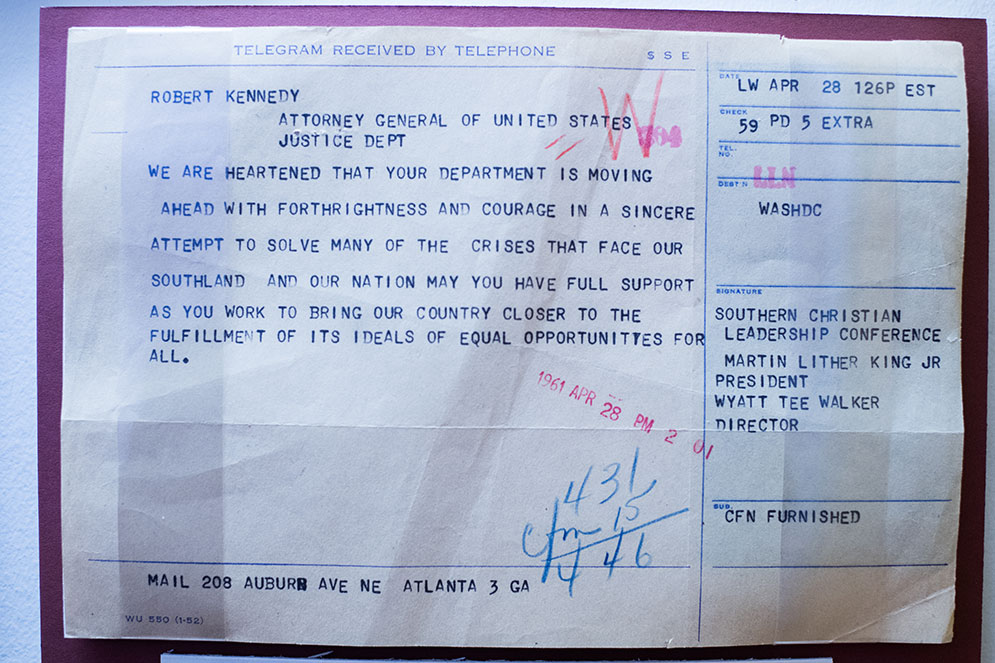 TELEGRAM RECEIVED BY TELEPHONE
S S E
ROBERT KENNEDY
ATTORNEY GENERAL OF UNITED STATES
JUSTICE DEPT
W
WE ARE HEARTENED THAT YOUR DEPARTMENT IS MOVING
AHEAD WITH FORTHRIGHTNESS AND COURAGE IN A SINCERE
ATTEMPT TO SOLVE MANY OF THE CRISES THAT FACE OUR
SOUTHLAND AND OUR NATION MAY YOU HAVE FULL SUPPORT
AS YOU WORK TO BRING OUR COUNTRY CLOSER TO THE
FULFILLMENT OF ITS IDEALS OF EQUAL OPPORTUNITTES FOR
ALL.
1961 APR 28 PM 2 01
431
15
446
MAIL 208 AUBURN AVE NE ATLANTA 3 GA
WU 550 (1-52)
DATE
LW APR 28 126P EST
CHECK
59 PD 5 EXTRA
TEL.
NO.
DEBT N
LLN
WASHDC
SIGNATURE
SOUTHERN CHRISTIAN
LEADERSHIP CONFERENCE
MARTIN LITHER KING JR
PRESIDENT
WYATT TEE WALKER
DIRECTOR
SUB.
CFN FURNISHED